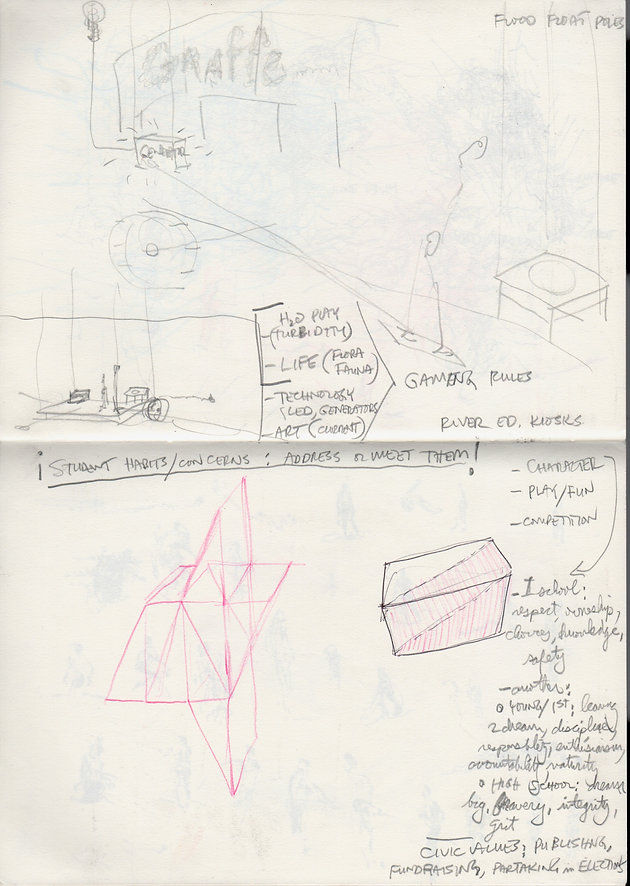 FLOOD FLOAT POLES
GRAFFE
GENERATOR
H₂O PLAY
-(TURBIDITY)
-LIFE (FLORA
FAUNA)
-TECHNOLOGY
LED, GENERATORS
ART (CURRENT)
GAMING RULES
RIVER ED. KIOSKS
¡STUDENT HABITS/CONCERNS: ADDRESS or MEET THEM!
- CHARACTER
- PLAY/FUN
- COMPETITION
- I school:
respect, ownership,
choices, knowledge,
safety
- another:
o YOUNG/1ST: learning
2 dream, discipline,
responsiblty, enthusiasm,
accountablty, maturity
o HIGH SCHOOL: dream
big, bravery, integrity,
grit
CIVIC VALUES; PUBLISHNG,
FUNDRAISING, PARTAKING in ELECTIONS